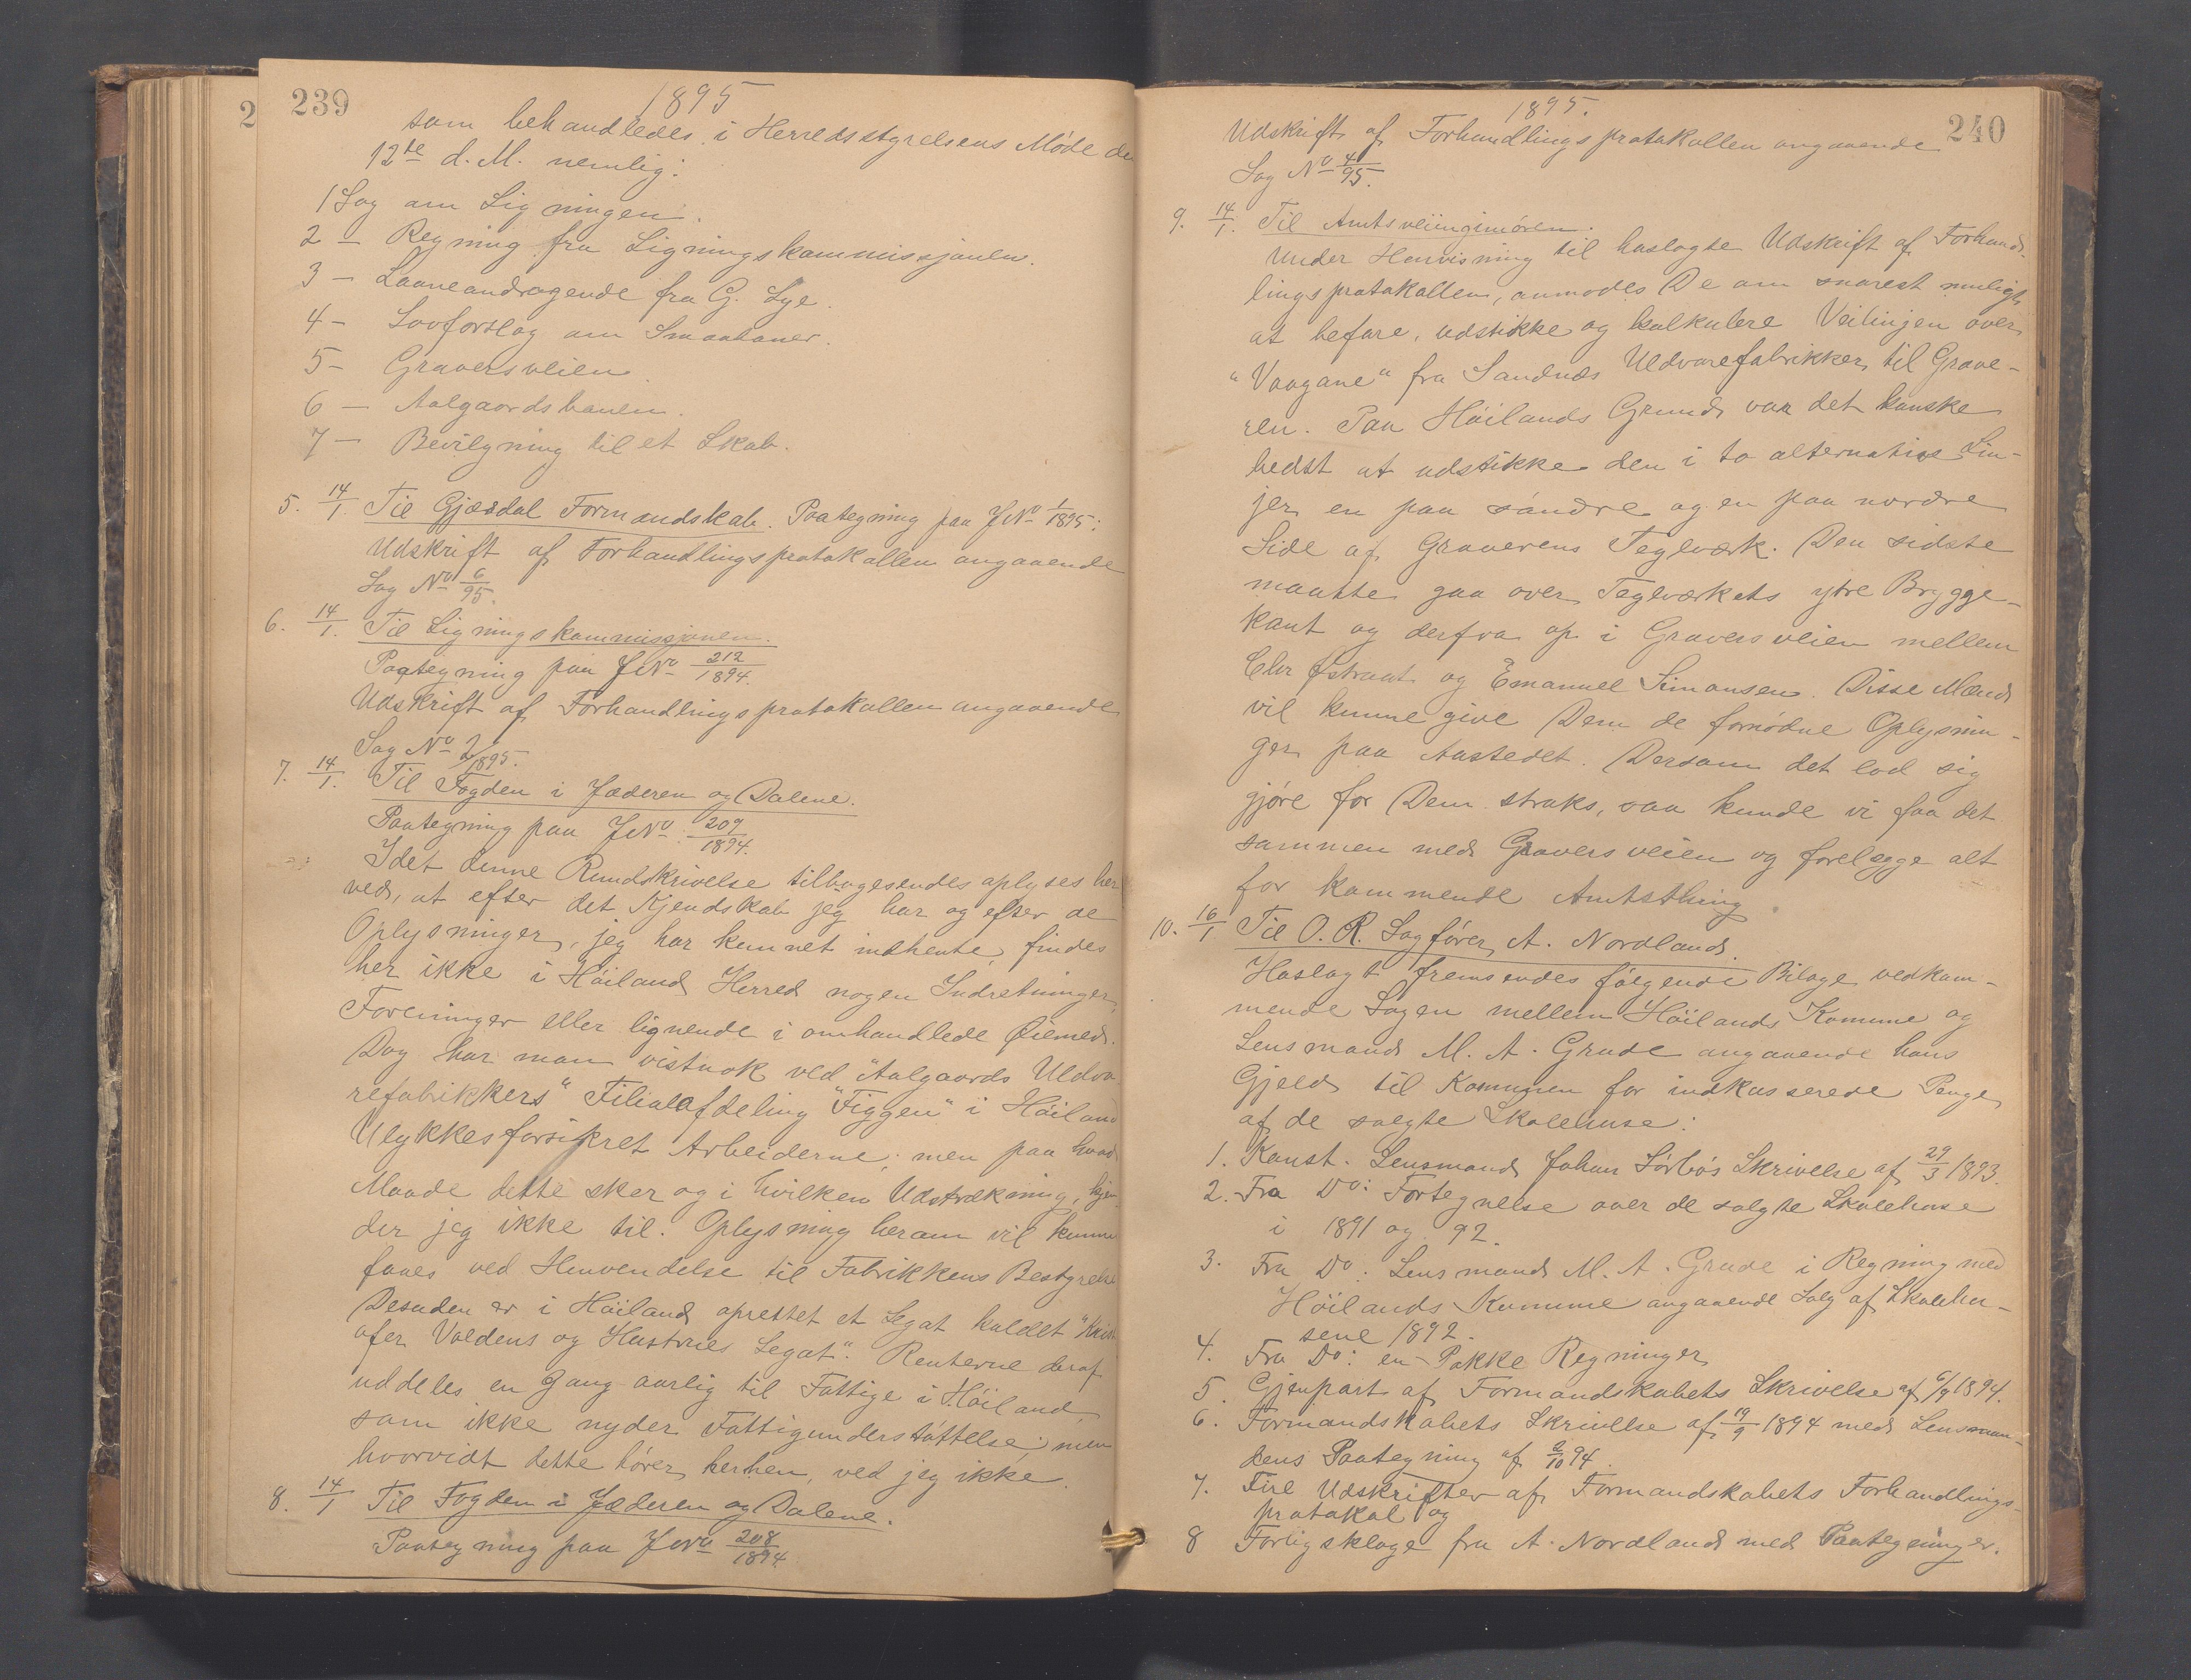 239
1895
som behandledes i Herredsstyrelsens Møde de
12te d. M. nemlig:
1 Sag om Ligningen.
2 — Regning fra Ligningskommissjonen.
3 — Laaneandragende fra G. Lye.
4 — Lovforslag om Smaabaner.
5 — Graversveien
6 — Aalgaardsbanen.
7 — Bevilgning til et Skab.
5. 14/1. Til Gjæsdal Formandskab. Paategning paa J№ 1/1895:
Udskrift af Forhandlingsprotokollen angaaende
Sag № 6/95.
6. 14/1. Til Ligningskommissjonen.
Paategning paa J№ 212/1894.
Udskrift af Forhandlingsprotokollen angaaende
Sag № 2/1895.
7. 14/1. Til Fogden i Jæderen og Dalene.
Paategning paa J№ 209/1894.
Idet denne Rundskrivelse tilbagesendes oplyses her
ved, at efter det Kjendskab jeg har og efter de
Oplysninger, jeg har kunnet indhente, findes
her ikke i Höiland Herred nogen Indretninger,
Foreninger eller lignende i omhandlede Øiemed.
Dog har man vistnok ved "Aalgaards Uldva
refabrikkers" Filialafdeling "Figgen" i Höiland
Ulykkesforsikret Arbeiderne; men paa hvad
Maade dette sker og i hvilken Udstrækning, kjen
der jeg ikke til. Oplysning herom vil kunne
faaes ved Henvendelse til Fabrikkens Bestyrelse
Desuden er i Höiland oprettet et Legat kaldet "Krist
ofer Valdens og Hustrues Legat". Renterne deraf
uddeles en Gang aarlig til Fattige i Höiland,
som ikke nyder Fattigunderstöttelse; men
hvorvidt dette hörer herhen, ved jeg ikke.
8. 14/1 Til Fogden i Jæderen og Dalene.
Paategning paa J№ 208/1894
240
1895.
Udskrift af Forhandlingsprotokollen angaaende
Sag № 4/95.
9. 14/1. Til Amtsveiingeniøren.
Under Henvisning til hoslagte Udskrift af Forhand-
lingsprotokollen, anmodes De om snarest muligt
at befare, udstikke og kalkulere Veilinjen over
"Vaagane" fra Sandnæs Uldvarefabrikker til Grave-
ren. Paa Höilands Grund var det kanske
bedst at udstikke den i to alternative Lin-
jer en paa söndre og en paa nordre
Side af Graverens Teglværk. Den sidste
maatte gaa over Teglværkets ytre Brygge-
kant og derfra op i Graversveien mellem
Chr Østraat og Emanuel Simonsen. Disse Mænd
vil kunne give Dem de fornödne Oplysnin-
ger paa Aastedet. Dersom det lod sig
gjöre for Dem straks, saa kunde vi faa det
sammen med Graversveien og forelægge alt
for kommende Amtsthing.
10. 16/1 Til O. R. Sagförer A. Nordland.
Hoslagt fremsendes fölgende Bilage vedkom-
mende Sagen mellem Höilands Komune og
Lensmand M. A. Grude angaaende hans
Gjeld til Kommunen for indkasserede Penge
af de solgte Skolehuse:
1. Konst. Lensmand Johan Sörbös Skrivelse af 29/3 1893.
2. Fra Do: Fortegnelse over de solgte Skolehuse
i 1891 og 92.
3. Fra Do: Lensmand M. A. Grude i Regning med
Höilands Kommune angaaende Salg af Skolehu-
sene 1892.
4. Fra Do: en Pakke Regninger
5. Gjenpart af Formandskabets Skrivelse af 6/9 1894.
6. Formandskabets Skrivelse af 19/9 1894 med Lensman-
dens Paategning af 2/10 94.
7. Fire Udskrifter af Formandskabets Forhandlings-
protokol og
8 Forligsklage fra A. Nordland med Paategninger.